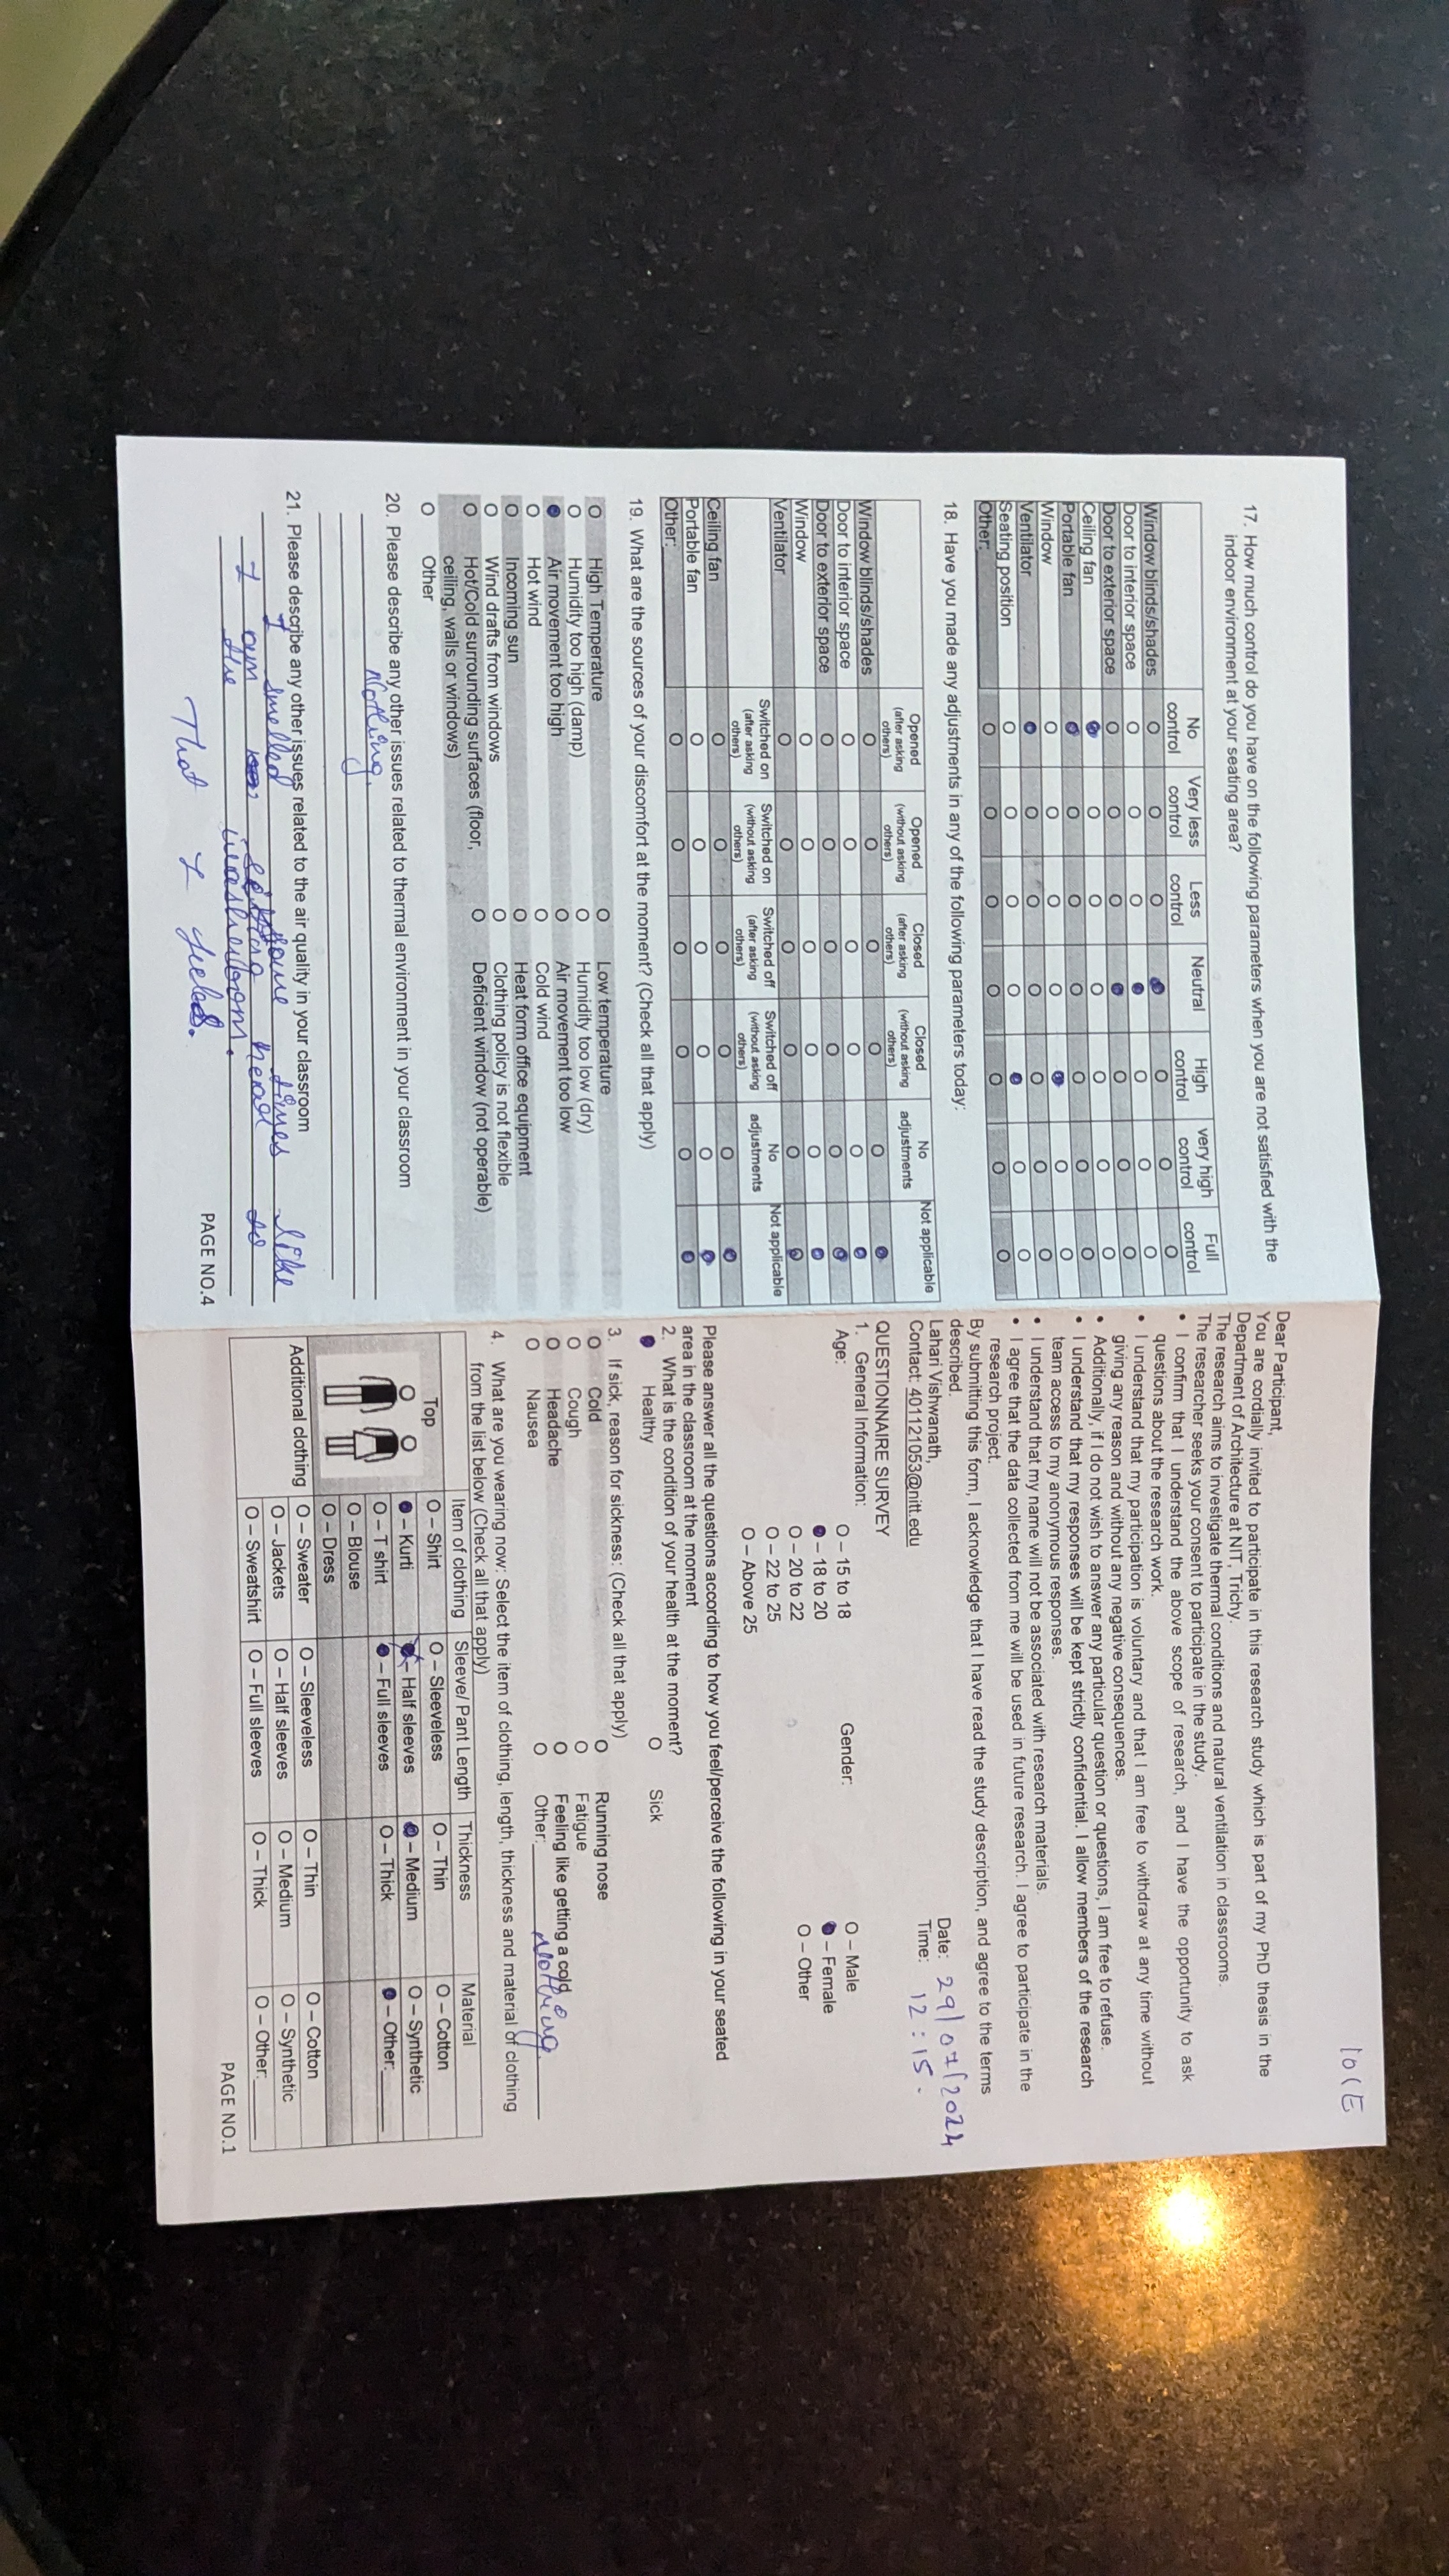 17. How much control do you have on the following parameters when you are not satisfied with the
indoor environment at your seating area?
No control Very less control Less control Neutral High control very high control Full control
Window blinds/shades O O O O O O O
Door to interior space O O O O O O O
Door to exterior space O O O O O O O
Ceiling fan O O O O O O O
Portable fan O O O O O O O
Window O O O O O O O
Ventilator O O O O O O O
Seating position O O O O O O O
Other: O O O O O O O
18. Have you made any adjustments in any of the following parameters today:
Opened (after asking others) Opened (without asking others) Closed (after asking others) Closed (without asking others) No adjustments Not applicable
Window blinds/shades O O O O O O
Door to interior space O O O O O O
Door to exterior space O O O O O O
Window O O O O O O
Ventilator O O O O O O
Switched on (after asking others) Switched on (without asking others) Switched off (after asking others) Switched off (without asking others) No adjustments Not applicable
Ceiling fan O O O O O O
Portable fan O O O O O O
Other: O O O O O O
19. What are the sources of your discomfort at the moment? (Check all that apply)
O High Temperature O Low temperature
O Humidity too high (damp) O Humidity too low (dry)
O Air movement too high O Air movement too low
O Hot wind O Cold wind
O Incoming sun O Heat form office equipment
O Wind drafts from windows O Clothing policy is not flexible
O Hot/Cold surrounding surfaces (floor, O Deficient window (not operable)
ceiling, walls or windows)
O Other
20. Please describe any other issues related to thermal environment in your classroom
Nothing.
21. Please describe any other issues related to the air quality in your classroom
I smelled some times like
I am sitting near to
the washroom.
That I feeled.
PAGE NO.4
10CE
Dear Participant,
You are cordially invited to participate in this research study which is part of my PhD thesis in the
Department of Architecture at NIT, Trichy.
The research aims to investigate thermal conditions and natural ventilation in classrooms.
The researcher seeks your consent to participate in the study.
• I confirm that I understand the above scope of research, and I have the opportunity to ask
questions about the research work.
• I understand that my participation is voluntary and that I am free to withdraw at any time without
giving any reason and without any negative consequences.
• Additionally, if I do not wish to answer any particular question or questions, I am free to refuse.
• I understand that my responses will be kept strictly confidential. I allow members of the research
team access to my anonymous responses.
• I understand that my name will not be associated with research materials.
• I agree that the data collected from me will be used in future research. I agree to participate in the
research project.
By submitting this form, I acknowledge that I have read the study description, and agree to the terms
described.
Lahari Vishwanath, Date: 29/07/2024
Contact: 401121053@nitt.edu Time: 12:15.
QUESTIONNAIRE SURVEY
1. General Information:
Age: O – 15 to 18 Gender: O – Male
O – 18 to 20 O – Female
O – 20 to 22 O – Other
O – 22 to 25
O – Above 25
Please answer all the questions according to how you feel/perceive the following in your seated
area in the classroom at the moment
2. What is the condition of your health at the moment?
O Healthy O Sick
3. If sick, reason for sickness: (Check all that apply)
O Cold O Running nose
O Cough O Fatigue
O Headache O Feeling like getting a cold
O Nausea O Other: Nothing.
4. What are you wearing now: Select the item of clothing, length, thickness and material of clothing
from the list below (Check all that apply)
Item of clothing Sleeve/ Pant Length Thickness Material
Top O – Shirt O – Sleeveless O – Thin O – Cotton
O O O – Kurti O – Half sleeves O – Medium O – Synthetic
O – T shirt O – Full sleeves O – Thick O – Other:
O – Blouse
O – Dress
Additional clothing O – Sweater O – Sleeveless O – Thin O – Cotton
O – Jackets O – Half sleeves O – Medium O – Synthetic
O – Sweatshirt O – Full sleeves O – Thick O – Other:
PAGE NO.1